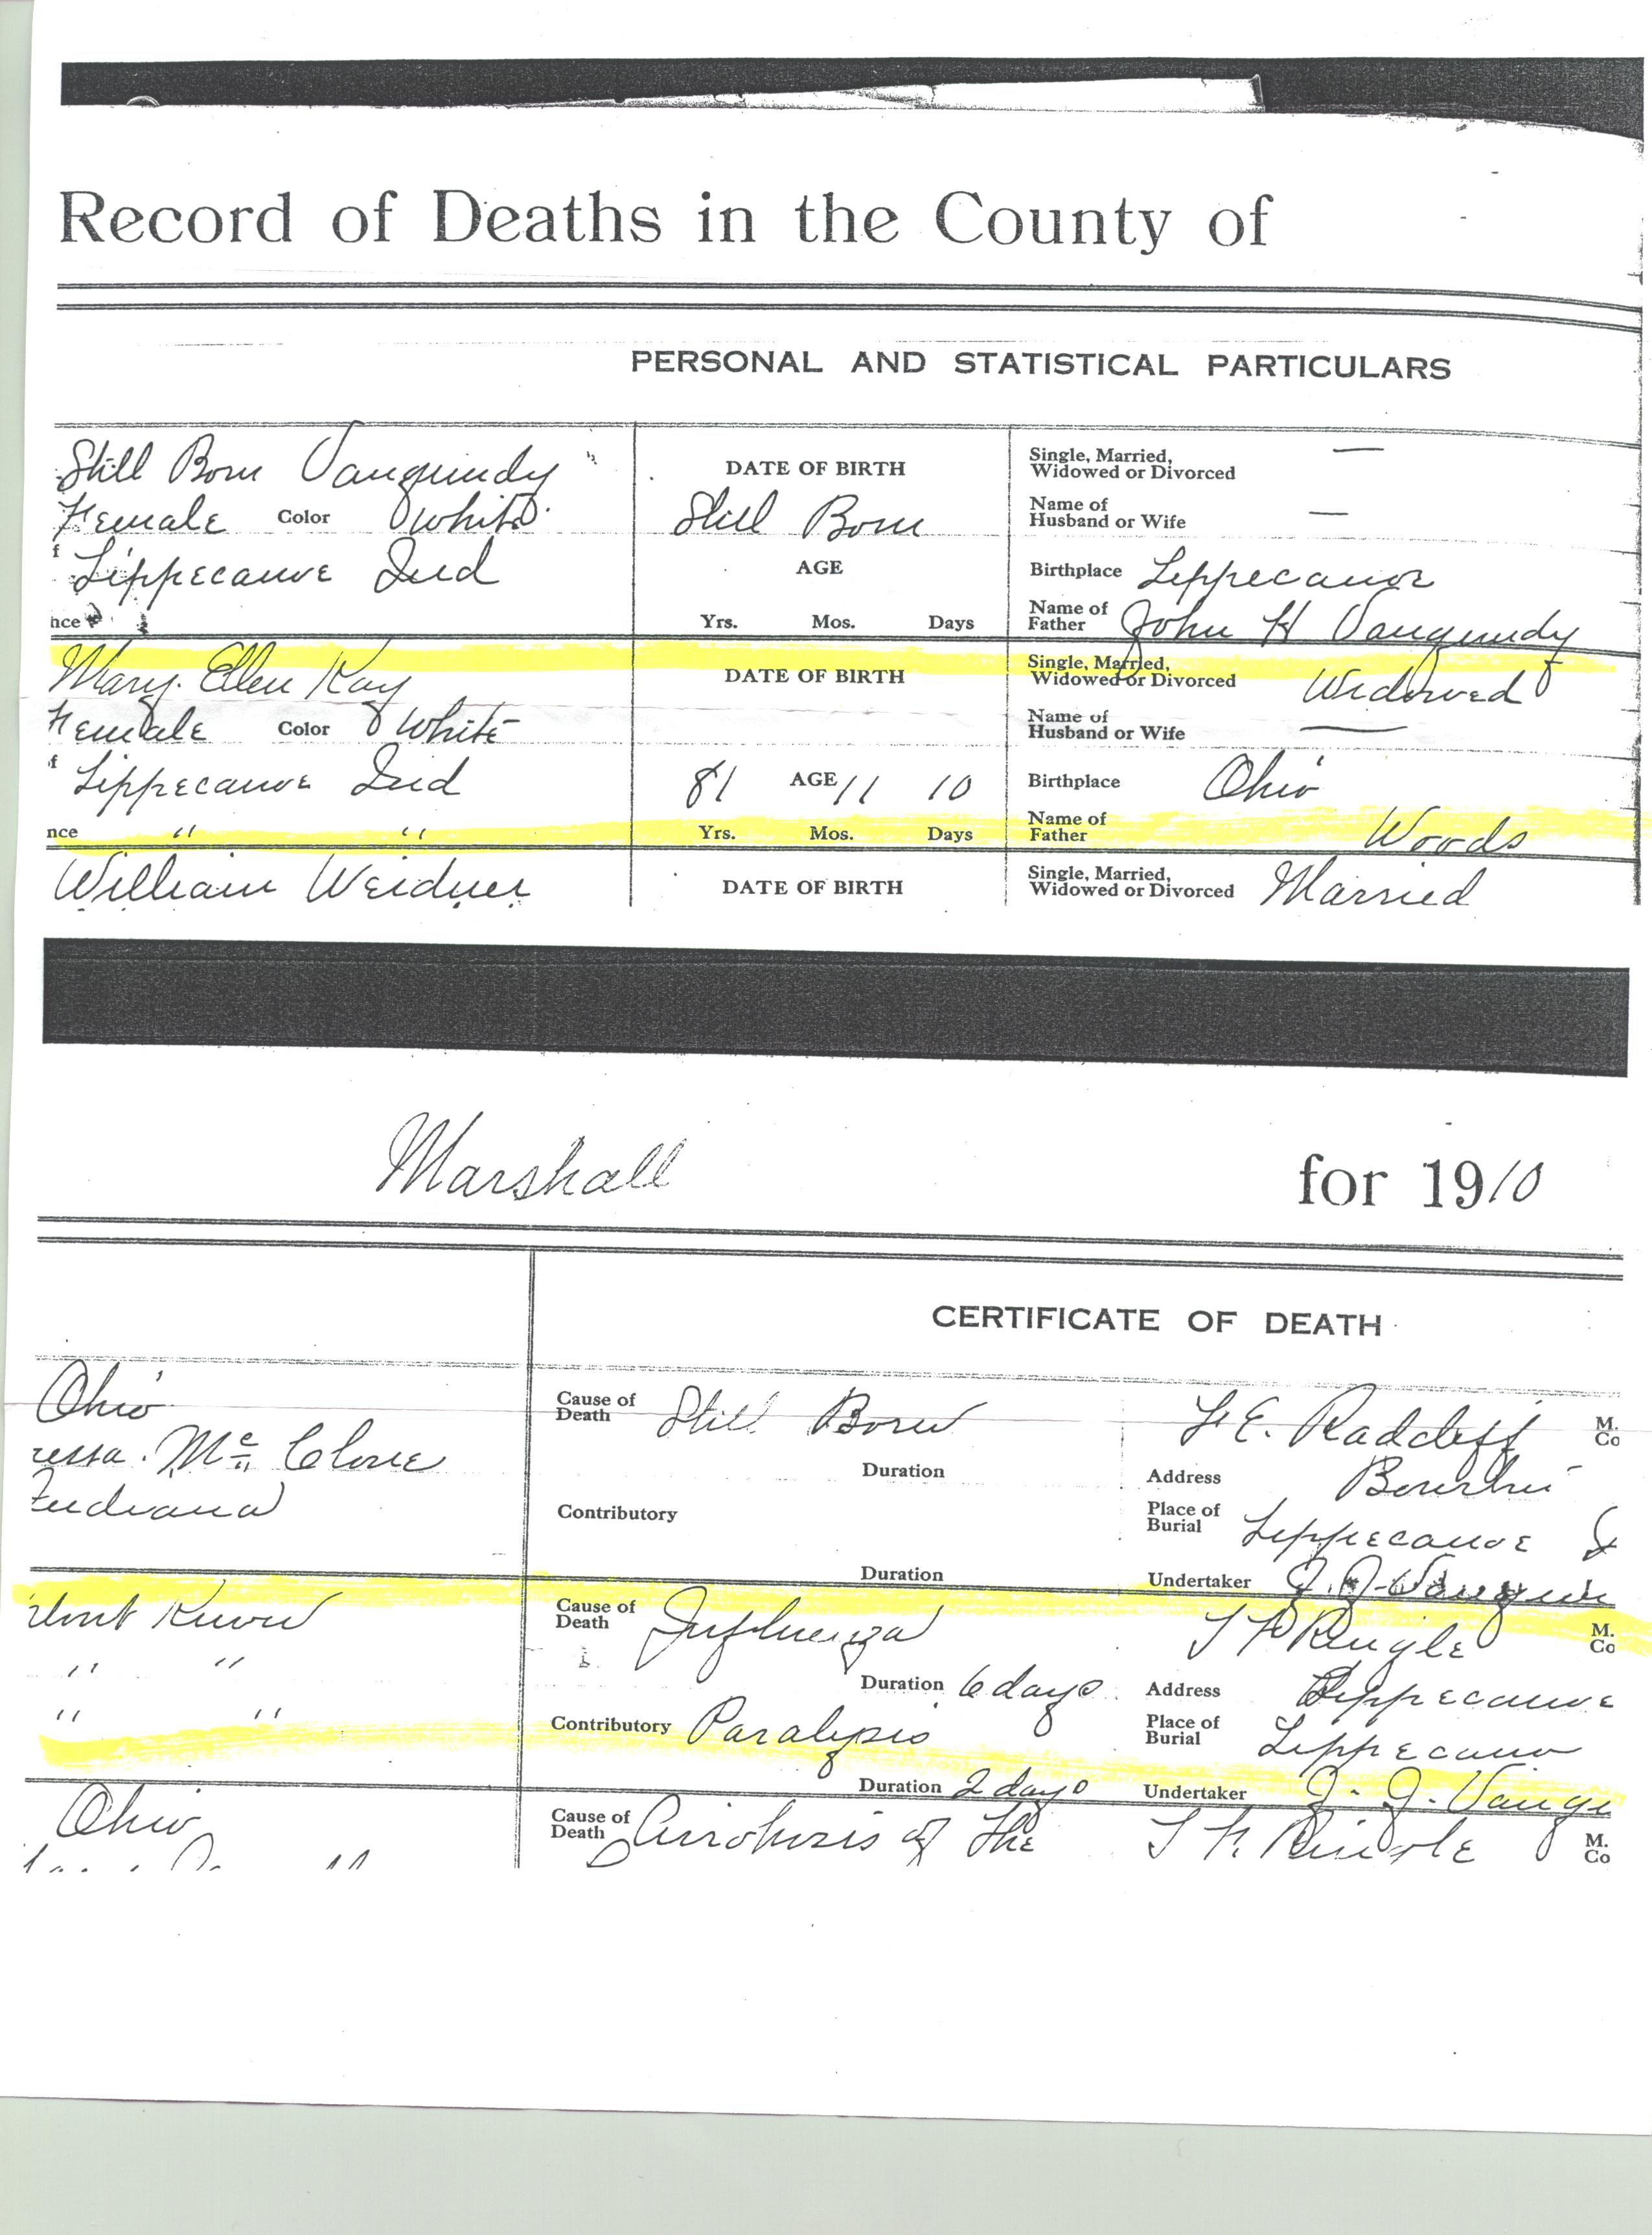 Record of Deaths in the County of
PERSONAL AND STATISTICAL PARTICULARS
Still Born Vangundy DATE OF BIRTH Single, Married, Widowed or Divorced —
Female Color White Still Born Name of Husband or Wife —
f Tippecanoe Ind AGE Birthplace Tippecanoe
nce Yrs. Mos. Days Name of Father John H Vangundy
Mary Ellen Kay DATE OF BIRTH Single, Married, Widowed or Divorced Widowed
Female Color White Name of Husband or Wife —
f Tippecanoe Ind 81 AGE 11 10 Birthplace Ohio
nce " " Yrs. Mos. Days Name of Father Woods
William Weidner DATE OF BIRTH Single, Married, Widowed or Divorced Married
Marshall for 1910
CERTIFICATE OF DEATH
Ohio Cause of Death Still Born F E. Radcliff M.
Co
ressa. Mc Clone Duration Address Bourbon
Indiana Contributory Place of Burial Tippecanoe
Duration Undertaker J. J. Vangun
dont Know Cause of Death Influenza T F Ringle M.
Co
" " Duration 6 days Address Tippecanoe
" " Contributory Paralysis Place of Burial Tippecano
Duration 2 days Undertaker J. J. Vangu
Ohio Cause of Death Cirrhosis of the T F. Ringle M.
Co